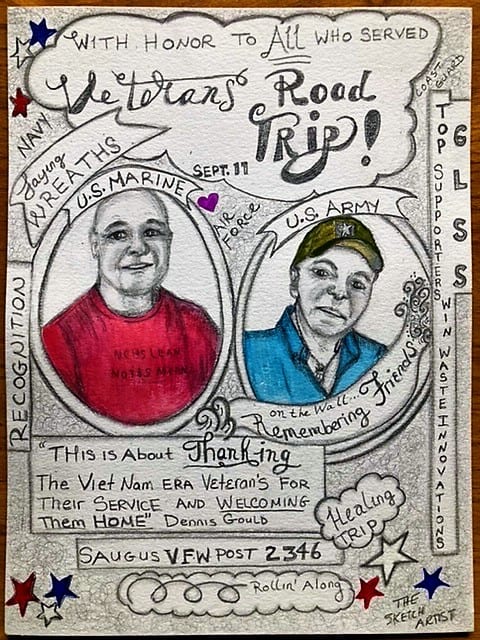 WITH HONOR TO All WHO SERVED
Veterans' Road
TRIP!
COAST
GUARD
NAVY
Laying
WREATHS
SEPT. 11
U.S. MARINE
AIR
FORCE
U.S. ARMY
TOP SUPPORTERS WIN WASTE INNOVATIONS
GLSS
RECOGNITION
on the Wall...
Remembering Friends
"THIS is About Thanking
The Viet Nam ERA Veteran's FOR
Their SERVICE AND WELCOMING
Them HOME" Dennis Gould
Healing
TRIP
SAUGUS VFW POST 2346
Rollin' Along
THE
SKETCH
ARTIST